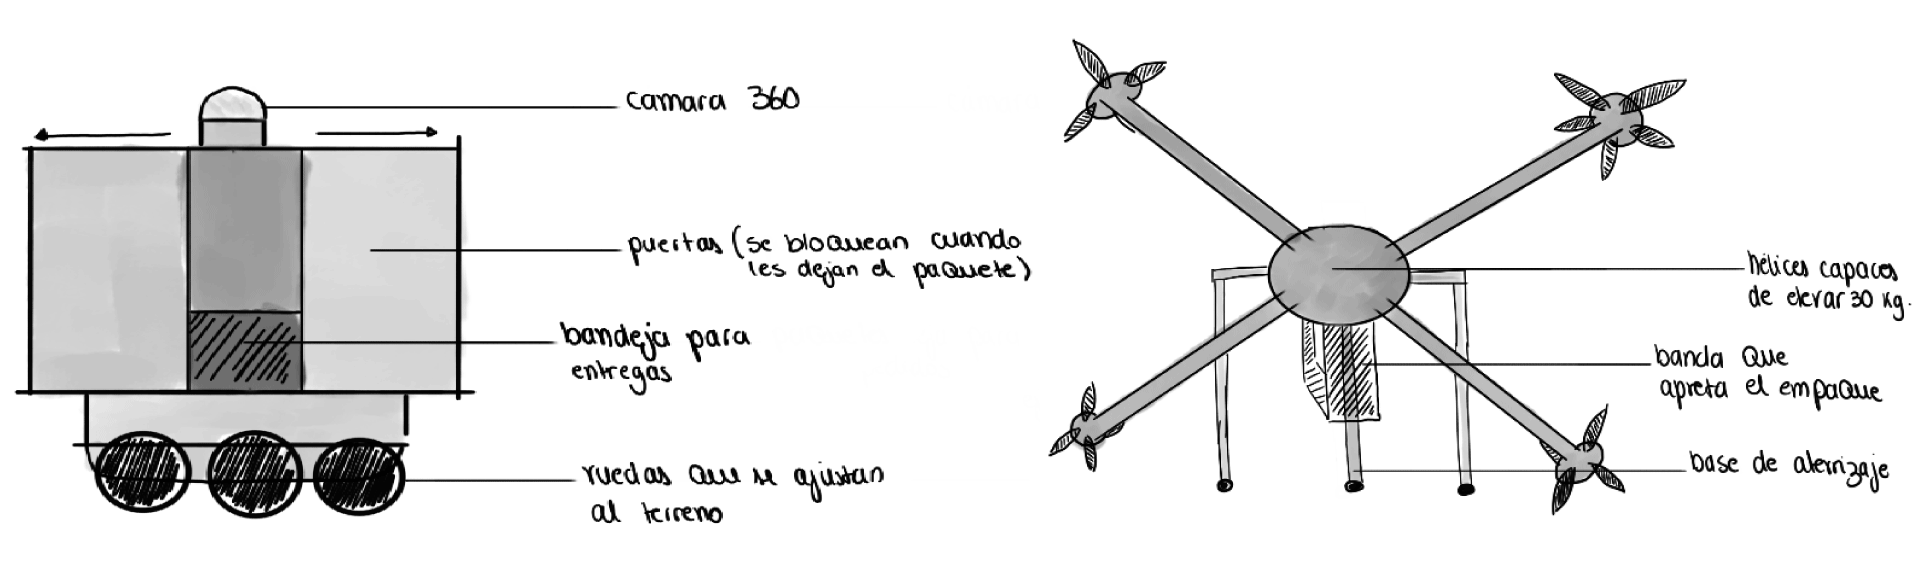 camara 360
puertas (se bloquean cuando
les dejan el paquete)
bandeja para
entregas
ruedas que se ajustan
al terreno
hélices capaces
de elevar 30 Kg.
banda que
apreta el empaque
base de aterrizaje